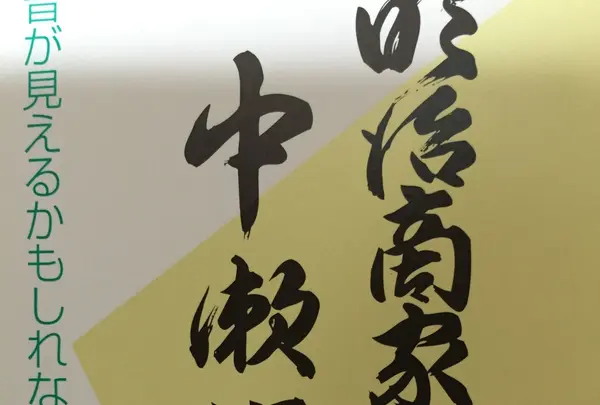 明治商家
中瀬
昔が見えるかもしれな